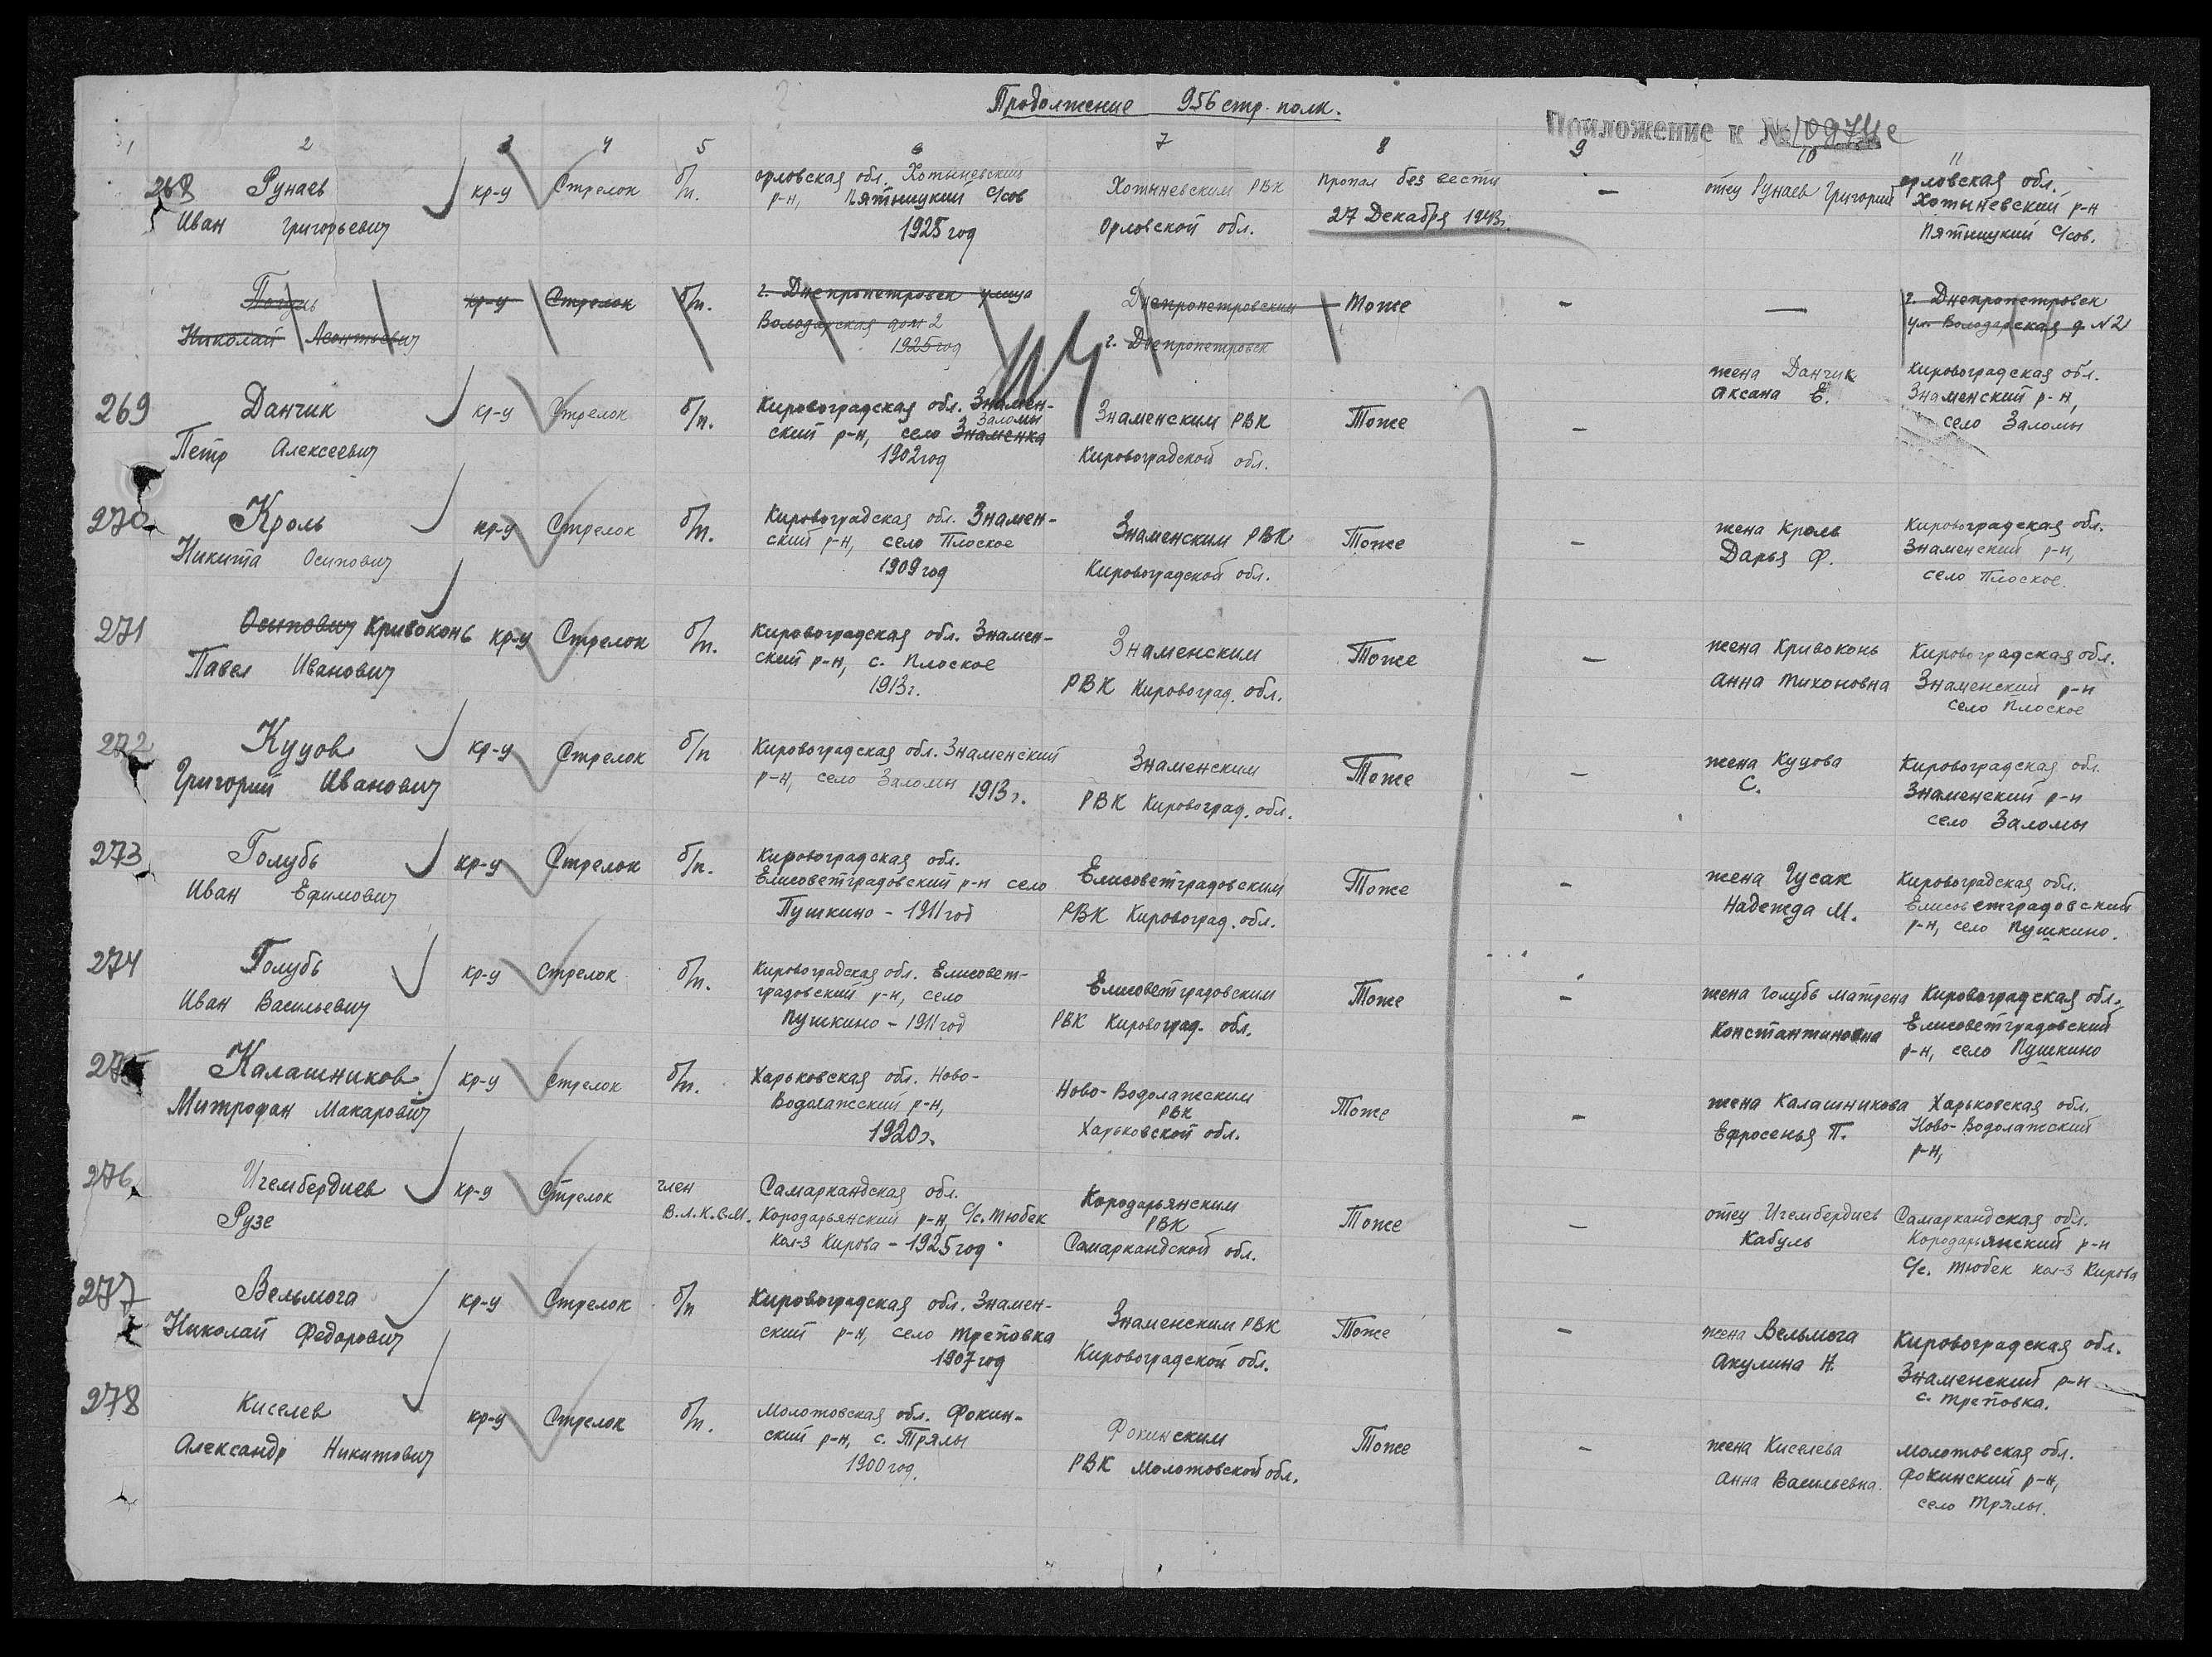 Продолжение 956 стр. полк.
Приложение к № 10974с
1 2 3 4 5 6 7 8 9 10 11
268 Рунаев кр-ц Стрелок б/п. орловская обл. Хотыневский Хотыневским РВК пропал без вести — отец Рунаев Григорий орловская обл.
Иван Григорьевич р-н, Пятницкий С/сов 1925 год Орловской обл. 27 Декабря 1943г. Хотыневский р-н
Пятницкий С/сов.
Николай Леонтьевич кр-ц Стрелок б/п. г. Днепропетровск улица Днепропетровским Тоже — — г. Днепропетровск
Володарская дом 2 1925 год г. Днепропетровск ул. Володарская д. N 2
269 Данчик кр-ц Стрелок б/п. Кировоградская обл. Знамен- Знаменским РВК Тоже — жена Данчик Кировоградская обл.
Петр Алексеевич ский р-н, село Знаменка Заломы Кировоградской обл. Аксана Е. Знаменский р-н,
1902 год село Заломы
270 Кроль кр-ц Стрелок б/п. Кировоградская обл. Знамен- Знаменским РВК Тоже — жена Кроль Кировоградская обл.
Никита Осипович ский р-н, село Плоское Кировоградской обл. Дарья Ф. Знаменский р-н,
1909 год село Плоское.
271 Осипович Кривоконь кр-ц Стрелок б/п. Кировоградская обл. Знамен- Знаменским Тоже — жена Кривоконь Кировоградская обл.
Павел Иванович ский р-н, с. Плоское РВК Кировоград. обл. Анна Тихоновна Знаменский р-н
1913г. село Плоское
272 Куцов кр-ц Стрелок б/п Кировоградская обл. Знаменский Знаменским Тоже — жена Куцова Кировоградская обл.
Григорий Иванович р-н, село Заломы 1913г. РВК Кировоград. обл. С. Знаменский р-н
село Заломы
273 Голубь кр-ц Стрелок б/п. Кировоградская обл. Елисоветградовским Тоже — жена Гусак Кировоградская обл.
Иван Ефимович Елисоветградовский р-н село РВК Кировоград. обл. Надежда М. Елисоветградовский
Пушкино - 1911 год р-н, село Пушкино.
274 Голубь кр-ц Стрелок б/п. Кировоградская обл. Елисовет- Елисоветградовским Тоже — жена Голубь Матрена Кировоградская обл.,
Иван Васильевич градовский р-н, село РВК Кировоград. обл. Константиновна Елисоветградовский
Пушкино - 1911 год р-н, село Пушкино
275 Калашников кр-ц Стрелок б/п. Харьковская обл. Ново- Ново-Водолажским Тоже — жена Калашникова Харьковская обл.
Митрофан Макарович Водолажский р-н, РВК Ефросенья П. Ново-Водолажский
1920г. Харьковской обл. р-н,
276 Игембердиев кр-ц Стрелок член Самаркандская обл. Кородарьянским Тоже — отец Игембердиев Самаркандская обл.
Рузе В.Л.К.С.М. Кородарьянский р-н, С/с. Тюбек РВК Кабуль Кородарьянский р-н
кол-з Кирова - 1925 год. Самаркандской обл. С/с. Тюбек кол-з Кирова
277 Вельмога кр-ц Стрелок б/п Кировоградская обл. Знамен- Знаменским РВК Тоже — жена Вельмога Кировоградская обл.
Николай Федорович ский р-н, село Треповка Кировоградской обл. Акулина Н. Знаменский р-н
1907 год с. Треповка.
278 Киселев кр-ц Стрелок б/п. Молотовская обл. Фокин- Фокинским Тоже — жена Киселева Молотовская обл.
Александр Никитович ский р-н, с. Трялы РВК Молотовской обл. Анна Васильевна. Фокинский р-н,
1900 год. село Трялы.